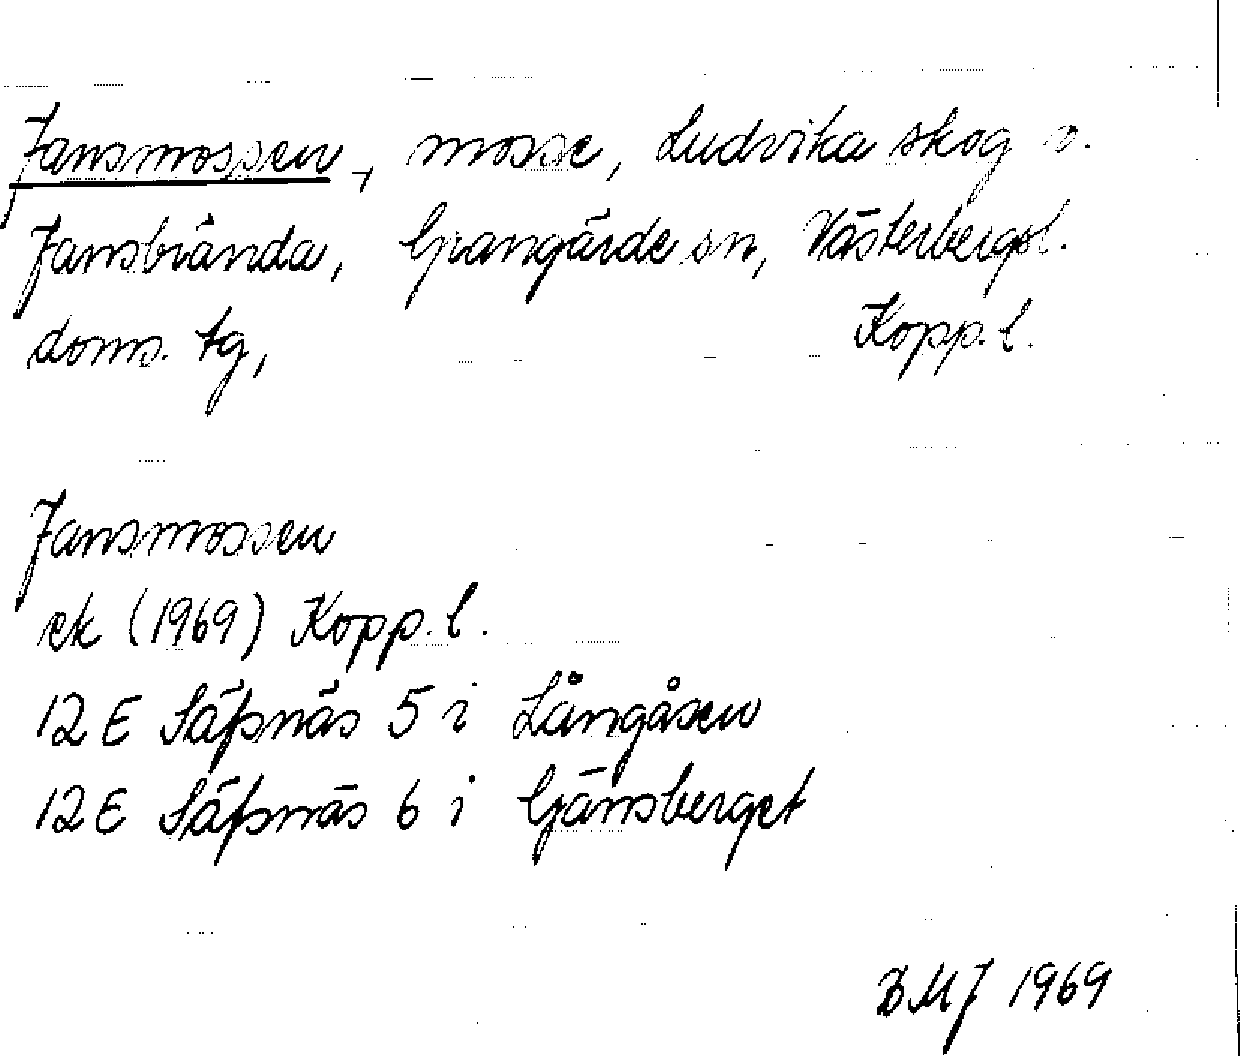 Jansmossen, mosse, Ludvika skog o.
Jansbrända, Grangärde sn, Västerbergsl.
doms. tg, Kopp. l.
Jansmossen
ek (1969) Kopp. l.
12 E Säfsnäs 5 i Långåsen
12 E Säfsnäs 6 i Gänsberget
BMJ 1969